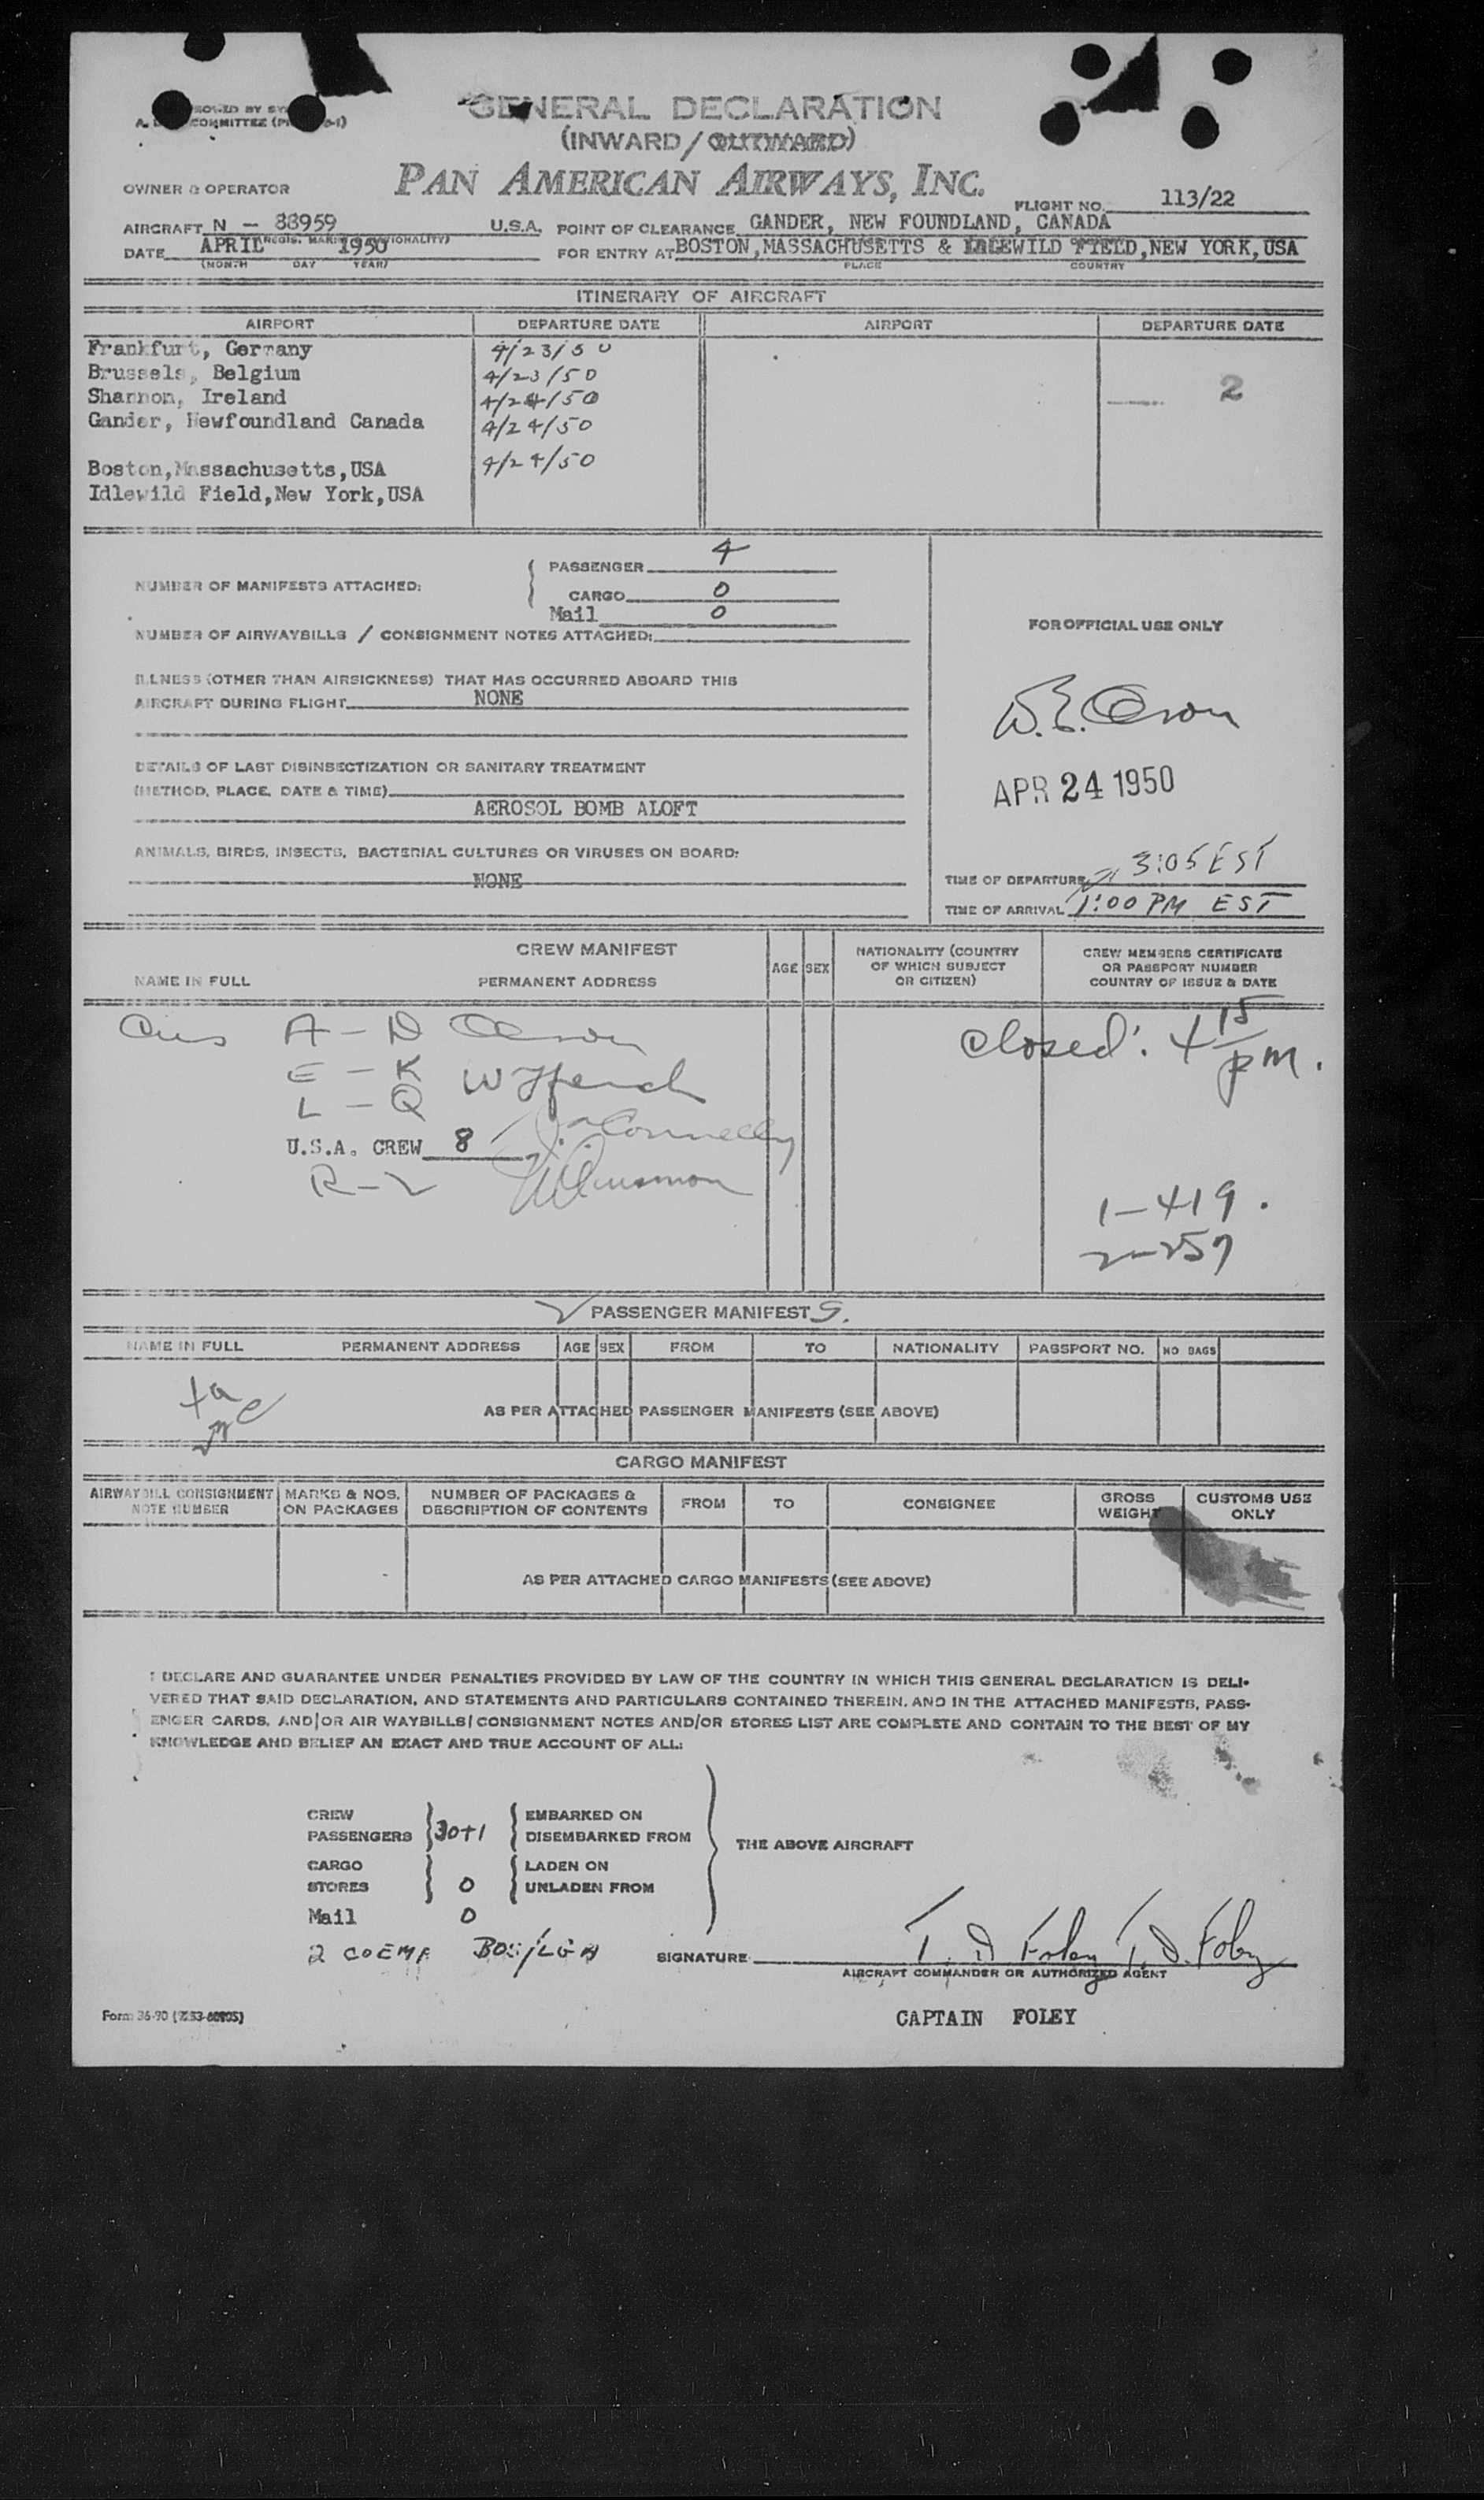 GENERAL DECLARATION
(INWARD / OUTWARD)
PAN AMERICAN AIRWAYS, INC.
OWNER & OPERATOR
FLIGHT NO. 113/22
AIRCRAFT N - 88959 U.S.A. POINT OF CLEARANCE GANDER, NEW FOUNDLAND, CANADA
DATE APRIL 1950 FOR ENTRY AT BOSTON, MASSACHUSETTS & IDLEWILD FIELD, NEW YORK, USA
(MONTH DAY YEAR) PLACE COUNTRY
ITINERARY OF AIRCRAFT
AIRPORT DEPARTURE DATE AIRPORT DEPARTURE DATE
Frankfurt, Germany 4/23/50
Brussels, Belgium 4/23/50 2
Shannon, Ireland 4/24/50
Gander, Newfoundland Canada 4/24/50
Boston, Massachusetts, USA 4/24/50
Idlewild Field, New York, USA
PASSENGER 4
NUMBER OF MANIFESTS ATTACHED:
CARGO 0
Mail 0
FOR OFFICIAL USE ONLY
NUMBER OF AIRWAYBILLS / CONSIGNMENT NOTES ATTACHED:
ILLNESS (OTHER THAN AIRSICKNESS) THAT HAS OCCURRED ABOARD THIS
AIRCRAFT DURING FLIGHT NONE
DETAILS OF LAST DISINSECTIZATION OR SANITARY TREATMENT
(METHOD, PLACE, DATE & TIME)
APR 24 1950
AEROSOL BOMB ALOFT
ANIMALS, BIRDS, INSECTS, BACTERIAL CULTURES OR VIRUSES ON BOARD:
NONE
TIME OF DEPARTURE 3:05 EST
TIME OF ARRIVAL 1:00 PM EST
CREW MANIFEST
NAME IN FULL PERMANENT ADDRESS
AGE SEX
NATIONALITY (COUNTRY
OF WHICH SUBJECT
OR CITIZEN)
CREW MEMBERS CERTIFICATE
OR PASSPORT NUMBER
COUNTRY OF ISSUE & DATE
Cus A - D
Closed: 4 15 pm.
E - K
L - Q
U.S.A. CREW 8
R - Z
1-419.
2-257
PASSENGER MANIFEST S.
NAME IN FULL PERMANENT ADDRESS AGE SEX FROM TO NATIONALITY PASSPORT NO. NO BAGS
AS PER ATTACHED PASSENGER MANIFESTS (SEE ABOVE)
CARGO MANIFEST
AIRWAYBILL CONSIGNMENT
NOTE NUMBER
MARKS & NOS.
ON PACKAGES
NUMBER OF PACKAGES &
DESCRIPTION OF CONTENTS
FROM TO CONSIGNEE
GROSS
WEIGHT
CUSTOMS USE
ONLY
AS PER ATTACHED CARGO MANIFESTS (SEE ABOVE)
I DECLARE AND GUARANTEE UNDER PENALTIES PROVIDED BY LAW OF THE COUNTRY IN WHICH THIS GENERAL DECLARATION IS DELI-
VERED THAT SAID DECLARATION, AND STATEMENTS AND PARTICULARS CONTAINED THEREIN, AND IN THE ATTACHED MANIFESTS, PASS-
ENGER CARDS, AND/OR AIR WAYBILLS/CONSIGNMENT NOTES AND/OR STORES LIST ARE COMPLETE AND CONTAIN TO THE BEST OF MY
KNOWLEDGE AND BELIEF AN EXACT AND TRUE ACCOUNT OF ALL:
CREW EMBARKED ON
PASSENGERS 30+1 DISEMBARKED FROM
THE ABOVE AIRCRAFT
CARGO LADEN ON
STORES 0 UNLADEN FROM
Mail 0
2 COEMA BOS/LGA
SIGNATURE T. D. Foley T. D. Foley
AIRCRAFT COMMANDER OR AUTHORIZED AGENT
CAPTAIN FOLEY